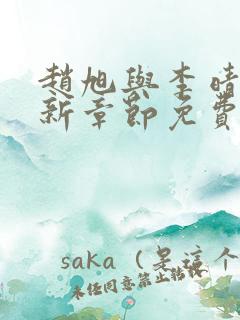 趙旭與李晴
新章節免費
saka（是這个
未任同意禁止轉載